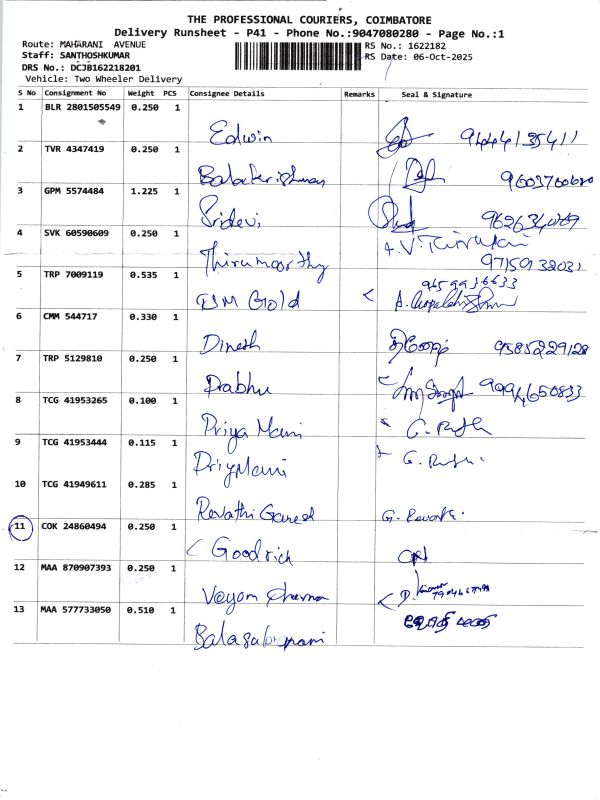 THE PROFESSIONAL COURIERS, COIMBATORE
Delivery Runsheet - P41 - Phone No.:9047080280 - Page No.:1
Route: MAHARANI AVENUE
RS No.: 1622182
Staff: SANTHOSHKUMAR
RS Date: 06-Oct-2025
DRS No.: DCJB162218201
Vehicle: Two Wheeler Delivery
S No Consignment No Weight PCS Consignee Details Remarks Seal & Signature
1 BLR 2801505549 0.250 1
Edwin 9444135411
2 TVR 4347419 0.250 1
Balakrishnan 9603700680
3 GPM 5574484 1.225 1
Sridevi
4 SVK 60590609 0.250 1
Thirumoorthy 9715932031
5 TRP 7009119 0.535 1
9659936633
BM Gold
6 CMM 544717 0.330 1
Dinesh 9585229128
7 TRP 5129810 0.250 1
Prabhu 9994650833
8 TCG 41953265 0.100 1
Priya Mani
9 TCG 41953444 0.115 1
PriyMani
10 TCG 41949611 0.285 1
Revathi Ganesh G. Revathi.
11 COK 24860494 0.250 1
Goodrich
12 MAA 870907393 0.250 1
13 MAA 577733050 0.510 1